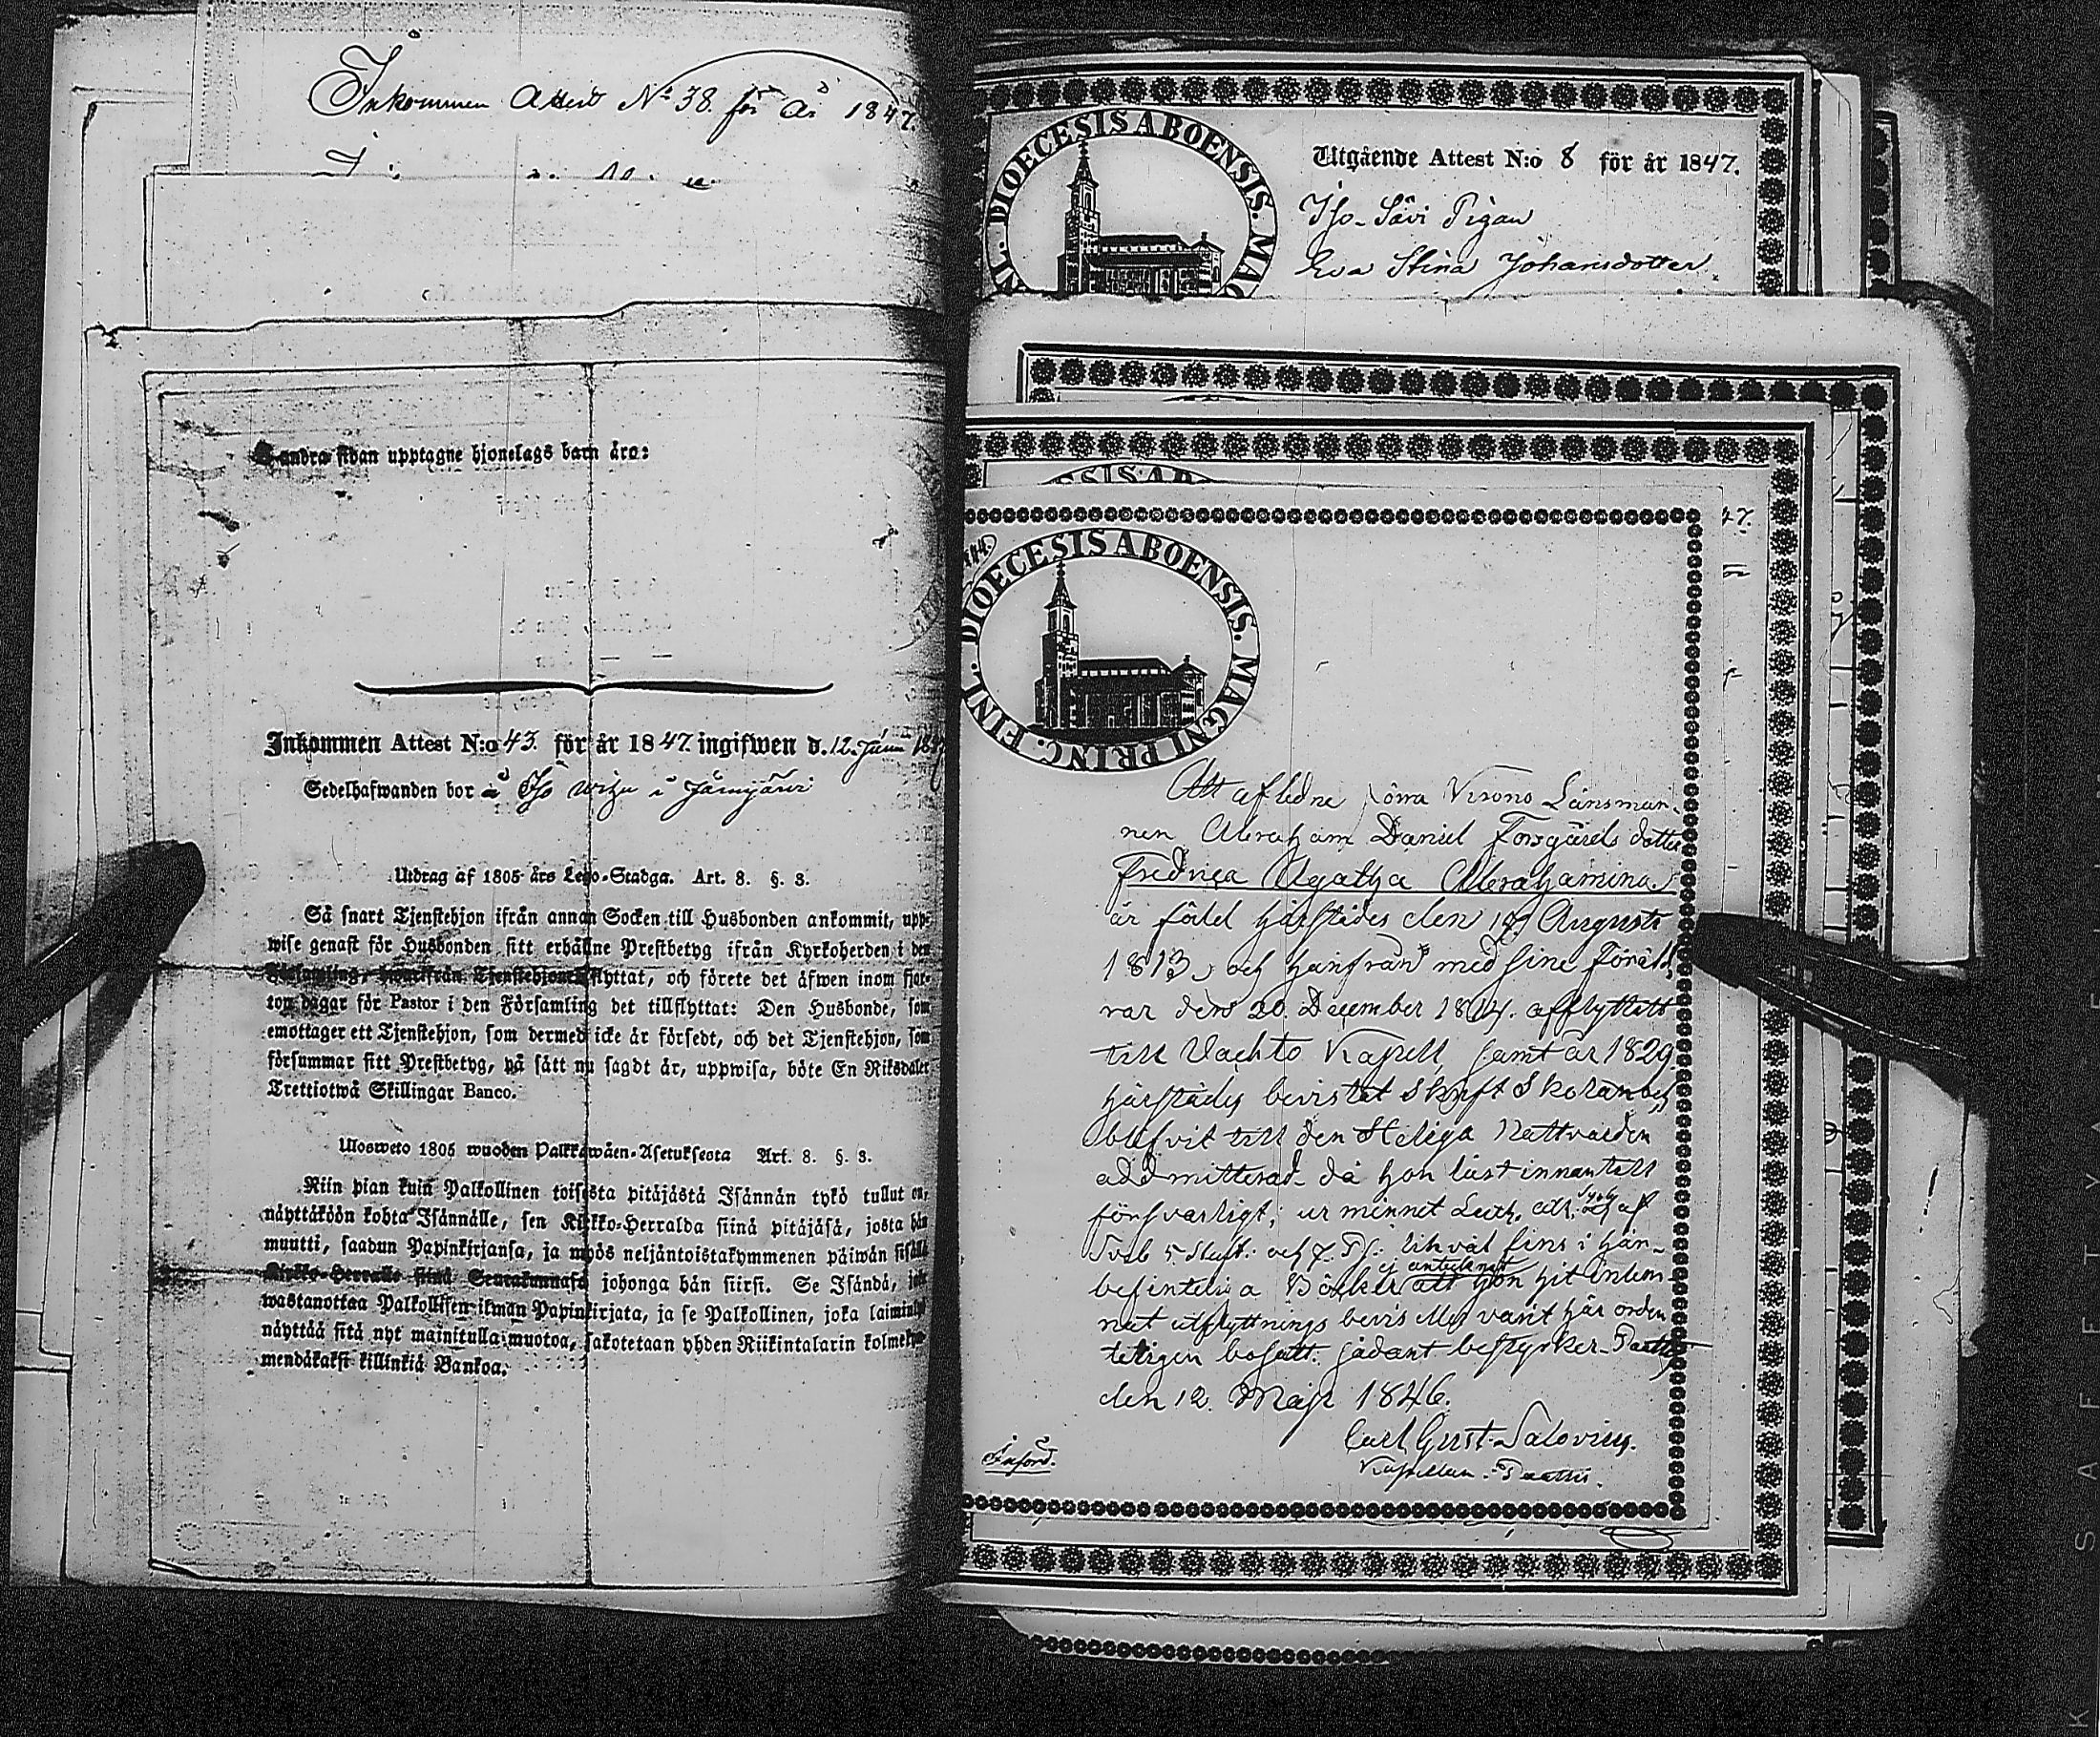 Inkommen Attest No 38. för år 1847.
andra sidan upptagne hjonelags barn äro:
Inkommen Attest N:o 43. för år 1847. ingifwen d. 12. Junii
Sedelhafwanden bor å Iso i
Utdrag af 1805 års Lego-Stadga. Art. 8. §. 3.
Så snart Tjenstehjon ifrån annan Socken till Husbonden ankommit, upp-
wise genast för Husbonden sitt erhållne Prestbetyg ifrån Kyrkoherden i den
Församling, hwarifrån Tjenstehjonet flyttat, och förete det äfwen inom fjor-
ton dagar för Pastor i den Församling det tillflyttat: Den Husbonde, som
emottager ett Tjenstehjon, som dermed icke är försedt, och det Tjenstehjon, som
försummar sitt Prestbetyg, på sätt nu sagdt är, uppwisa, böte En Riksdaler
Trettiotwå Skillingar Banco.
Ulosweto 1805 wuoden Palkkawäen-Asetuksesta Art. 8. §. 3.
Niin pian kuin Palkollinen toisesta pitäjästä Isännän tykö tullut on,
näyttäköön kohta Isännälle, sen Kirkko-Herralda siinä pitäjäsä, josta hän
muutti, saadun Papinkirjansa, ja myös neljäntoistakymmenen päiwän sisällä
Kirkko-Herralle siinä Seurakunnasa johonga hän siirsi. Se Isändä, joka
wastanottaa Palkollisen ilman Papinkirjata, ja se Palkollinen, joka laiminlyö
näyttää sitä nyt mainitulla muotoa, sakotetaan yhden Riikintalarin kolmeky-
mendäkaksi killinkiä Bankoa.
DIOECESIS ABOENSIS. MAG
Utgående Attest N:o 8 för år 1847.
Iso-Sävi Pigan
Eva Stina Johansdotter.
47.
DIOECESIS ABOENSIS. MAGNI PRINC. FINL.
Att aflidne Länsman-
nen Abraham Daniel Forsgårds dotter
Fredrica Agatha Abrahamina
är född härstädes den Augusti
1813, och härifrån med sine Föräld-
rar den 20 December 1814. afflyttat
till Vachto Kapell, samt år 1829
härstädes bevistat Skrift Skolan och
blifvit till den Heliga Nattvarden
admitterad då hon läst innantill
försvarligt; ur minnet Luth. och af
Sveb 5 Stuft. och 7. Ps. likväl fins i här-
befinteliga Böcker ej antecknat att hon hit inlem-
nat utflyttnings bevis eller varit här orden
teligen bosatt. sådant bestyrker. Paattis
den 12. Maji 1846.
Carl Gust. Salovius.
Kapellan. Paattis.
Införd.